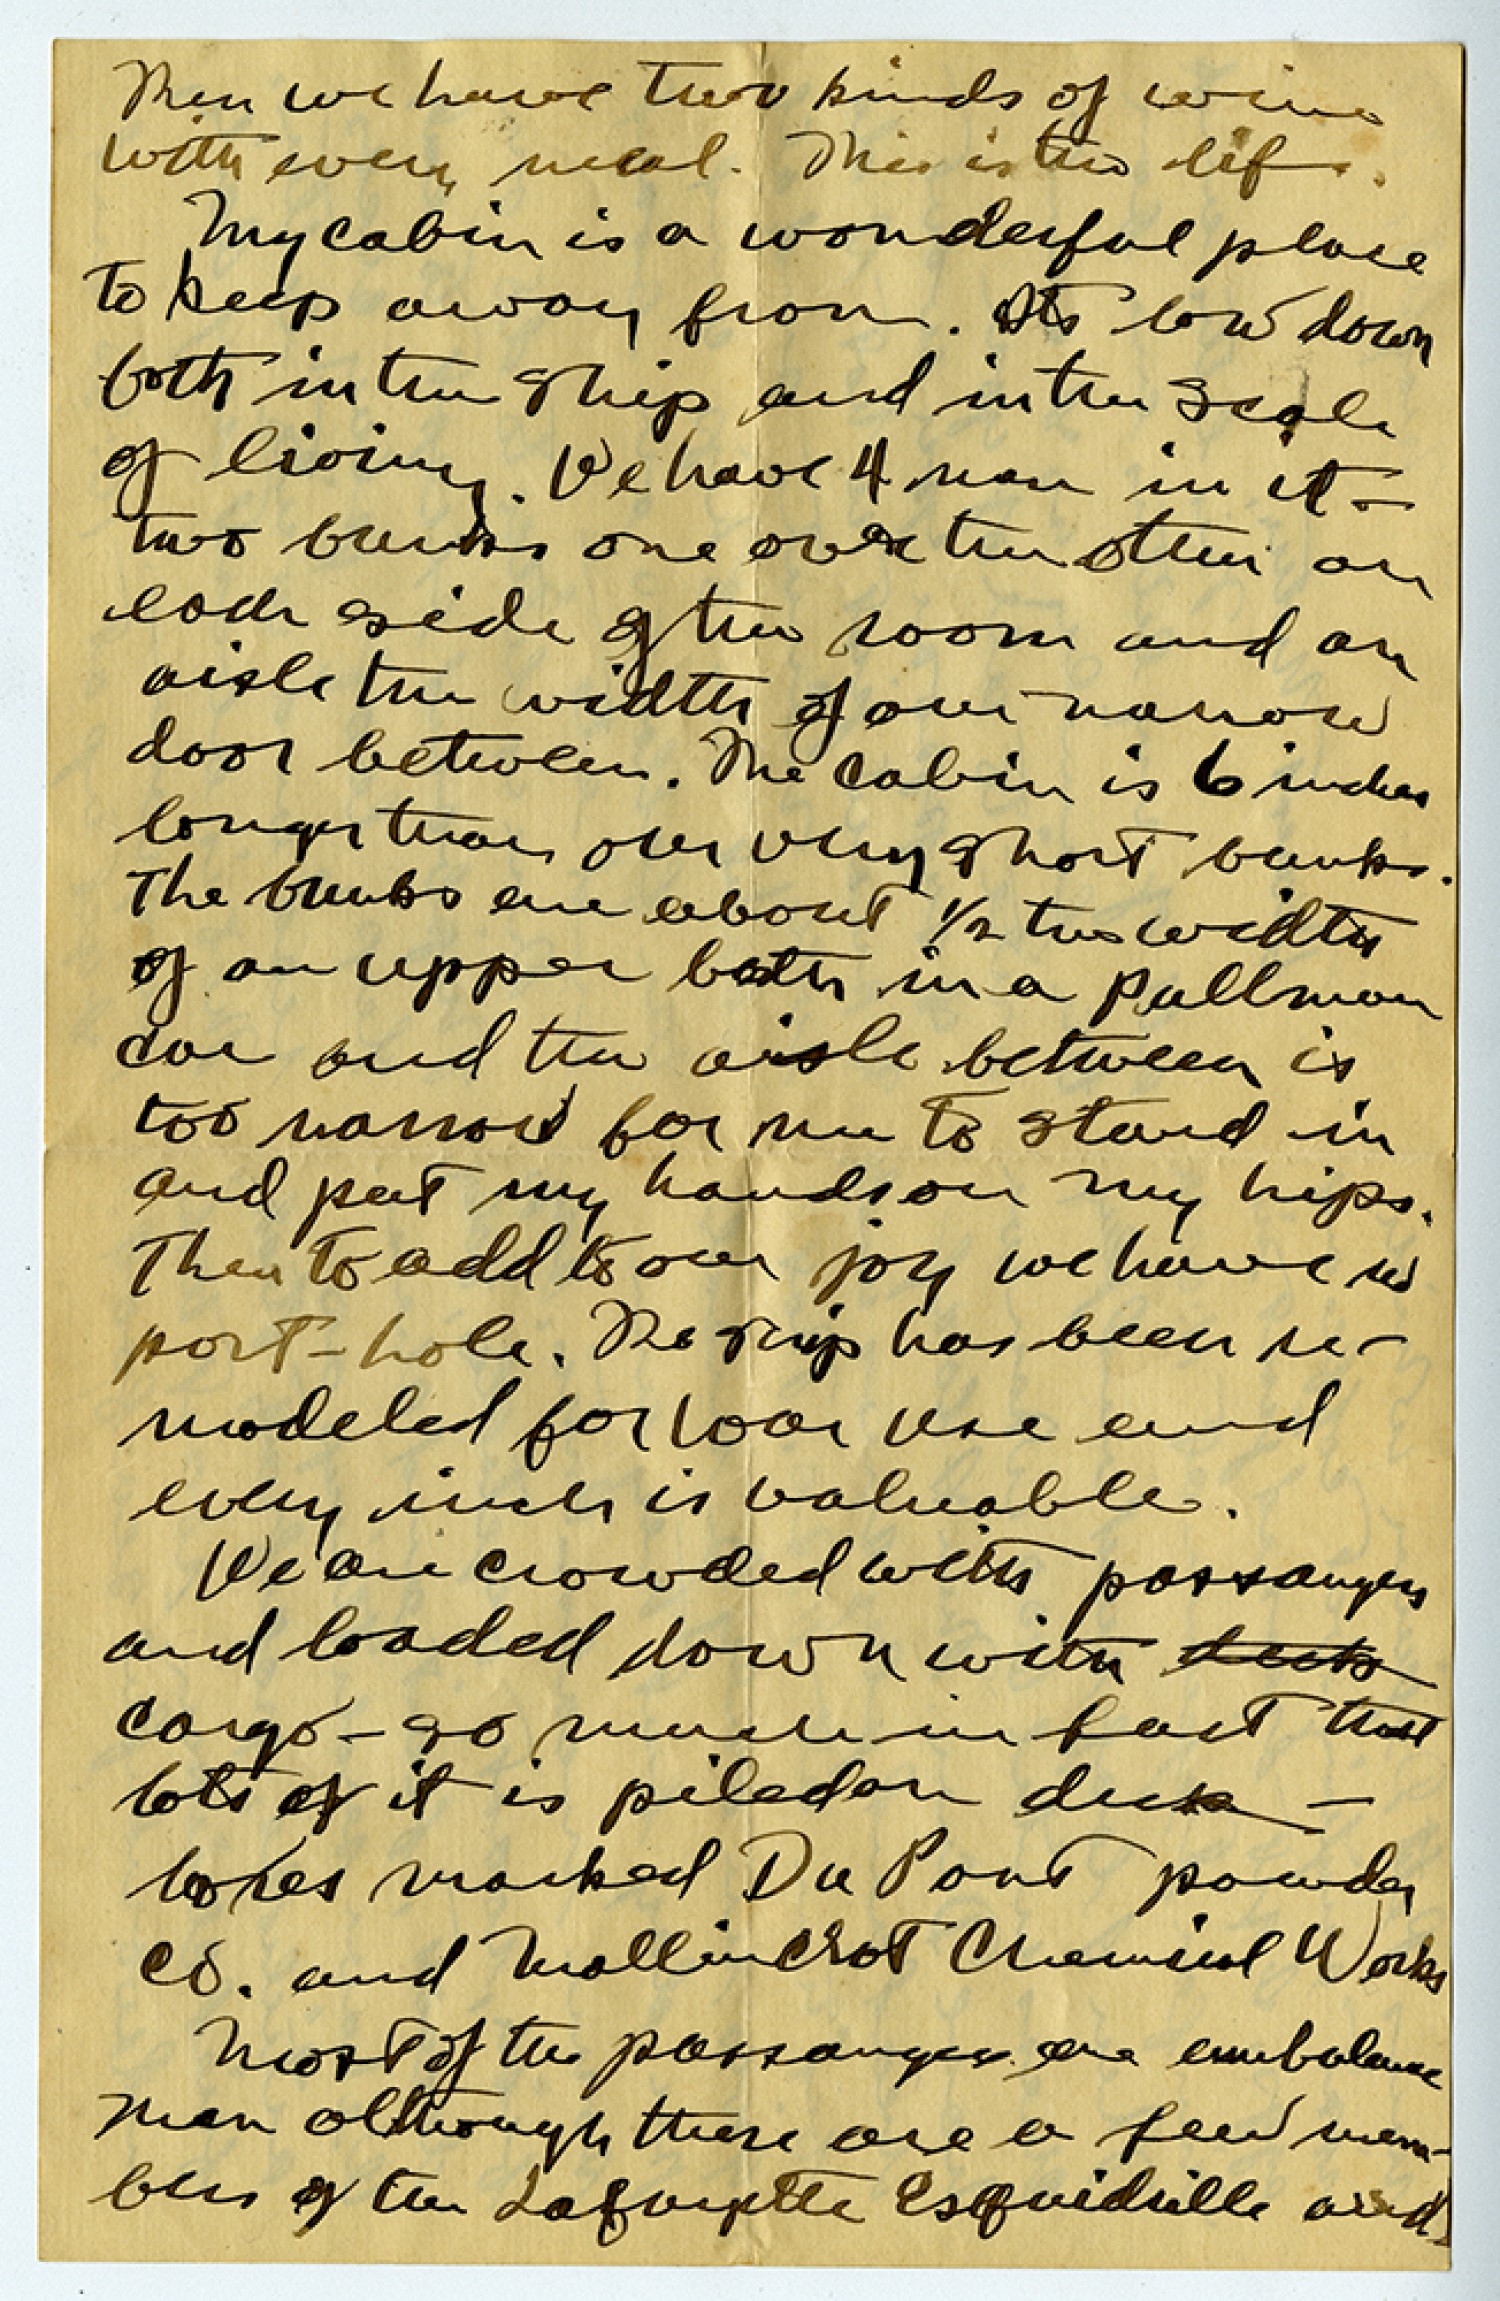 Then we have two kinds of wine
with every meal. This is the life.
My cabin is a wonderful place
to keep away from. Its low down
both in the ship and in the scale
of living. We have 4 men in it –
two bunks one over the other on
each side of the room and an
aisle the width of our narrow
door between. The cabin is 6 inches
longer than our very short bunks.
The bunks are about 1/2 the width
of an upper bath in a pullman
car and the aisle between is
too narrow for me to stand in
and put my hands on my hips.
Then to add to our joy we have no
port-hole. The ship has been re-
modeled for war use and
every inch is valuable.
We are crowded with passangers
and loaded down with
cargo – so much in fact that
lots of it is piled on deck –
boxes marked Du Pont powder
co. and Mallincrot Chemical Works
Most of the passangers are ambulance
men although there are a few mem-
bers of the Lafayette Esquidrille and